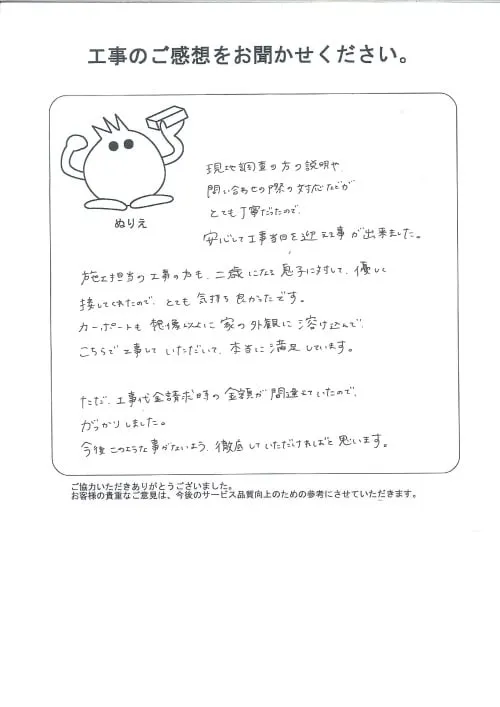 工事のご感想をお聞かせください。
ぬりえ
現地調査の方の説明や、
問い合わせの際の対応などが
とても丁寧だったので、
安心して工事当日を迎える事が出来ました。
施工担当の工事の方も、二歳になる息子に対して、優しく
接してくれたので、とても気持ち良かったです。
カーポートも想像以上に家の外観に溶け込んで、
こちらで工事していただいて、本当に満足しています。
ただ、工事代金請求時の金額が間違えていたので、
がっかりしました。
今後このような事がないよう、徹底していただければと思います。
ご協力いただきありがとうございました。
お客様の貴重なご意見は、今後のサービス品質向上のための参考にさせていただきます。